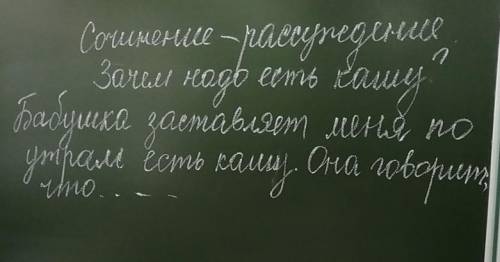 Сочинение – рассуждение.
Зачем надо есть кашу?
Бабушка заставляет меня по
утрам есть кашу. Она говорит,
что.. – –